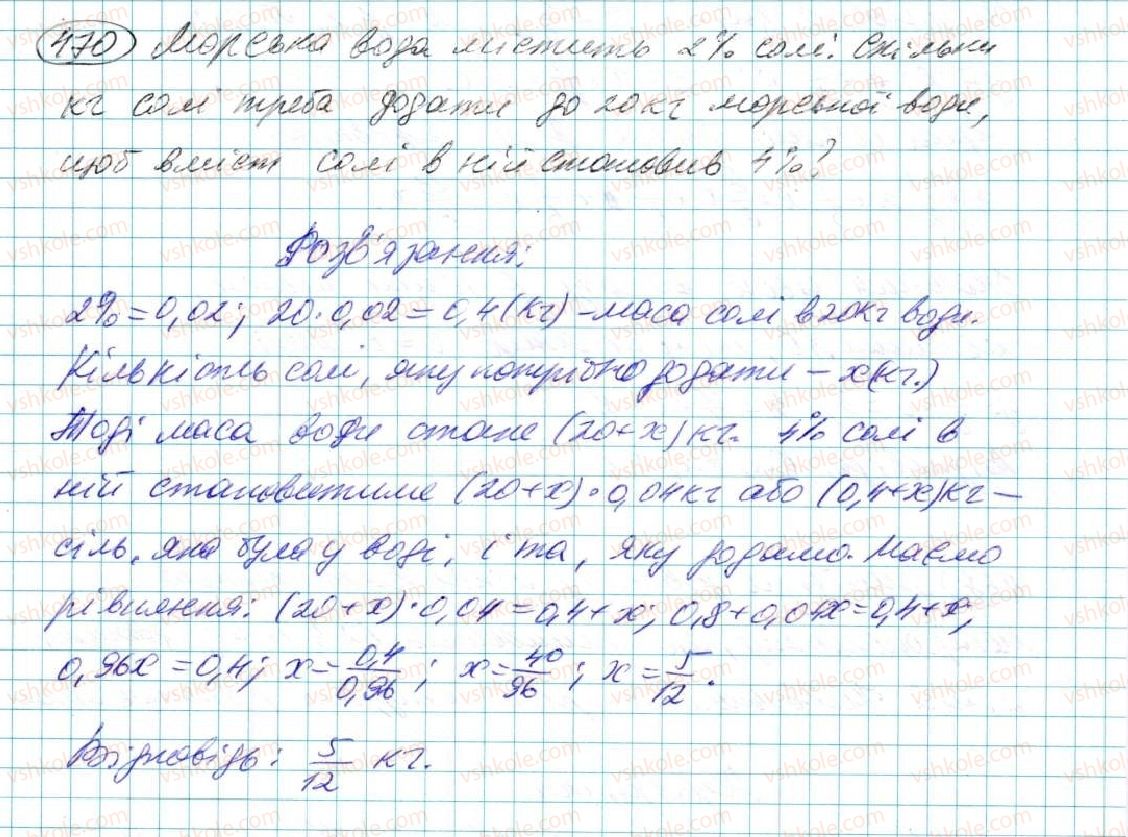 470 Морська вода містить 2% солі. Скільки
кг солі треба додати до 20 кг морської води,
щоб вміст солі в ній становив 4%?
Розв'язання:
2% = 0,02; 20·0,02 = 0,4 (кг) – маса солі в 20 кг води.
Кількість солі, яку потрібно додати – x (кг.)
Тоді маса води стане (20+x) кг. 4% солі в
ній становитиме (20+x)·0,04 кг або (0,4+x) кг –
сіль, яка була у воді, і та, яку додамо. Маємо
рівняння: (20+x)·0,04 = 0,4+x; 0,8+0,04x = 0,4+x;
0,96x = 0,4; x = 0,4/0,96; x = 40/96; x = 5/12.
Відповідь: 5/12 кг.